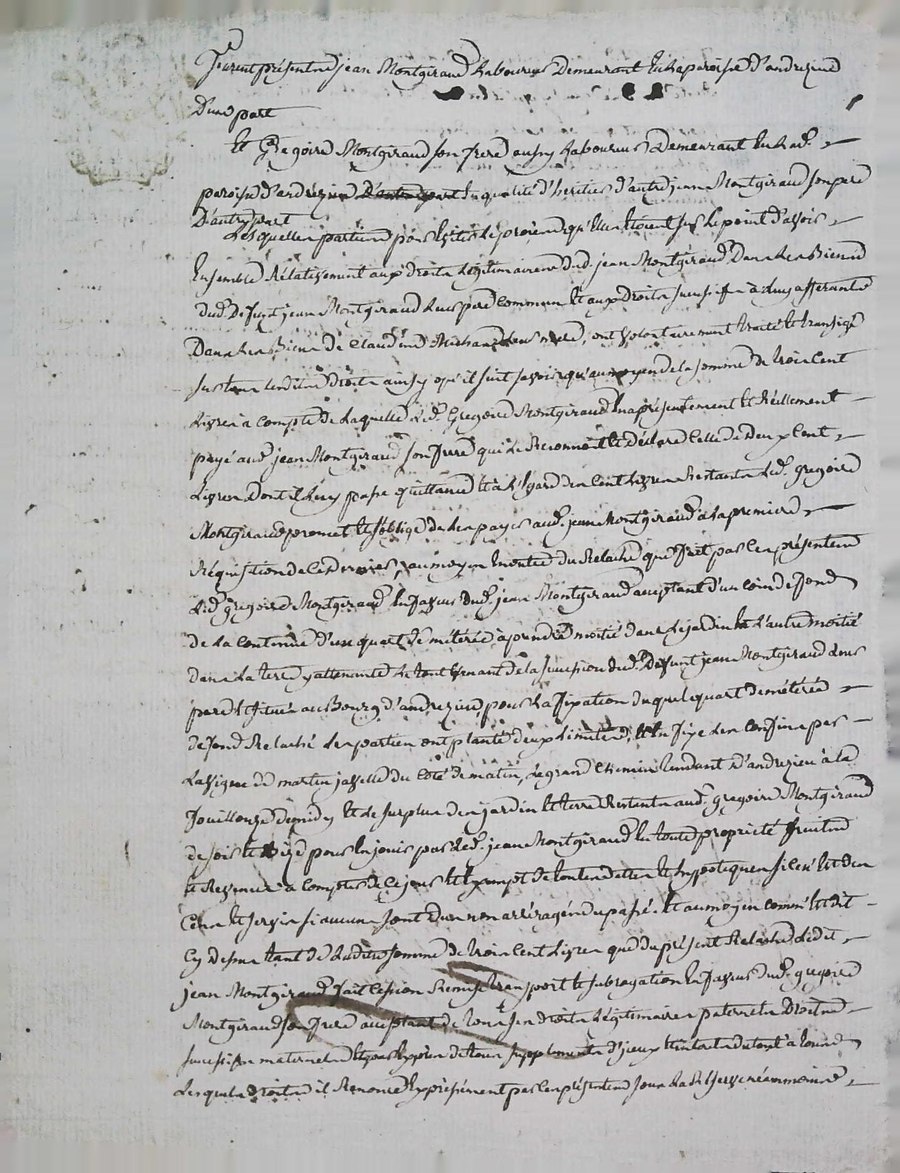 furent présents jean Montgiraud Laboureur Demeurant En La paroisse d'andrezieu
D'une part
Et Gregoire Montgiraud son frere aussy Laboureur Demeurant En Lad.
paroisse d'andrezieu D'autre part En qualité d'heritier d'autre jean Montgiraud son pere
D'autre part
Lesquelles parties pour Eviter Le procès qu'Elles Etoient sur Le point d'avoir
Ensemble Relativement aux Droits Légitimaires dud. jean Montgiraud Dans Les Biens
dud. Defunt jean Montgiraud Leur pere commun Et aux Droits successifs à Luy afferants
Dans Les Biens de Claudine Leur mere, ont volontairement traité Et transigé
sur tous lesdits Droits ainsy qu'il suit savoir qu'au moyen de la somme de trois Cent
Livres a compte de Laquelle Led. Gregoire Montgiraud En a présentement Et Réellement
payé aud. jean Montgiraud son frere qui Le Reconnoit Et Déclare Celle de Deux Cent
Livres Dont il L'en passe quittance Et à L'égard des Cent Livres Restants Led. gregoire
Montgiraud promet Et s'oblige de Les payer aud. jean Montgiraud à La premiere
Réquisition de Ce dernier, au moyen Encore du Relaché que fait par Ces présentes
Led. gregoire Montgiraud En faveur dud. jean Montgiraud acceptant d'un coin de fond
de La Contenue d'un quart de méterée à prendre moitié dans Le jardin Et L'autre moitié
dans La terre y attenante Le tout venant de la succession dud. Defunt jean Montgiraud Leur
pere Et situé au Bourg d'andrezieu, pour La fixation duquel quart de méterée
de fond Relaché Les parties ont planté deux Limites, Et En fixe Les Confins par
La vigne de martin jasselle du Coté de matin, Le grand Chemin tendant d'andrezieu à la
fouillouse de midy Et Le surplus des jardin Et terre Restants aud. gregoire Montgiraud
de soir Et Bize pour En jouir par Led. jean Montgiraud En toute propriété fruits
Et Revenus a Compter de Ce jour Et Exempt de toutes dettes Et hypoteques si ce n'est des
Cens Et servis si aucuns sont dus non arréragés du passé. Et au moyen comm'Est dit
Cy dessus tant de Ladite somme de trois Cent Livres que du présent Relaché Ledit
jean Montgiraud fait Cession Remise transport Et subrogation En faveur dud. gregoire
Montgiraud son frere acceptant de tous ses droits Légitimaires paternels Droits
successifs maternels Et tous Suppléments d'iceux
Lesquels droits il Renonce Expressément par Ces présentes sous La Réserve néammoins